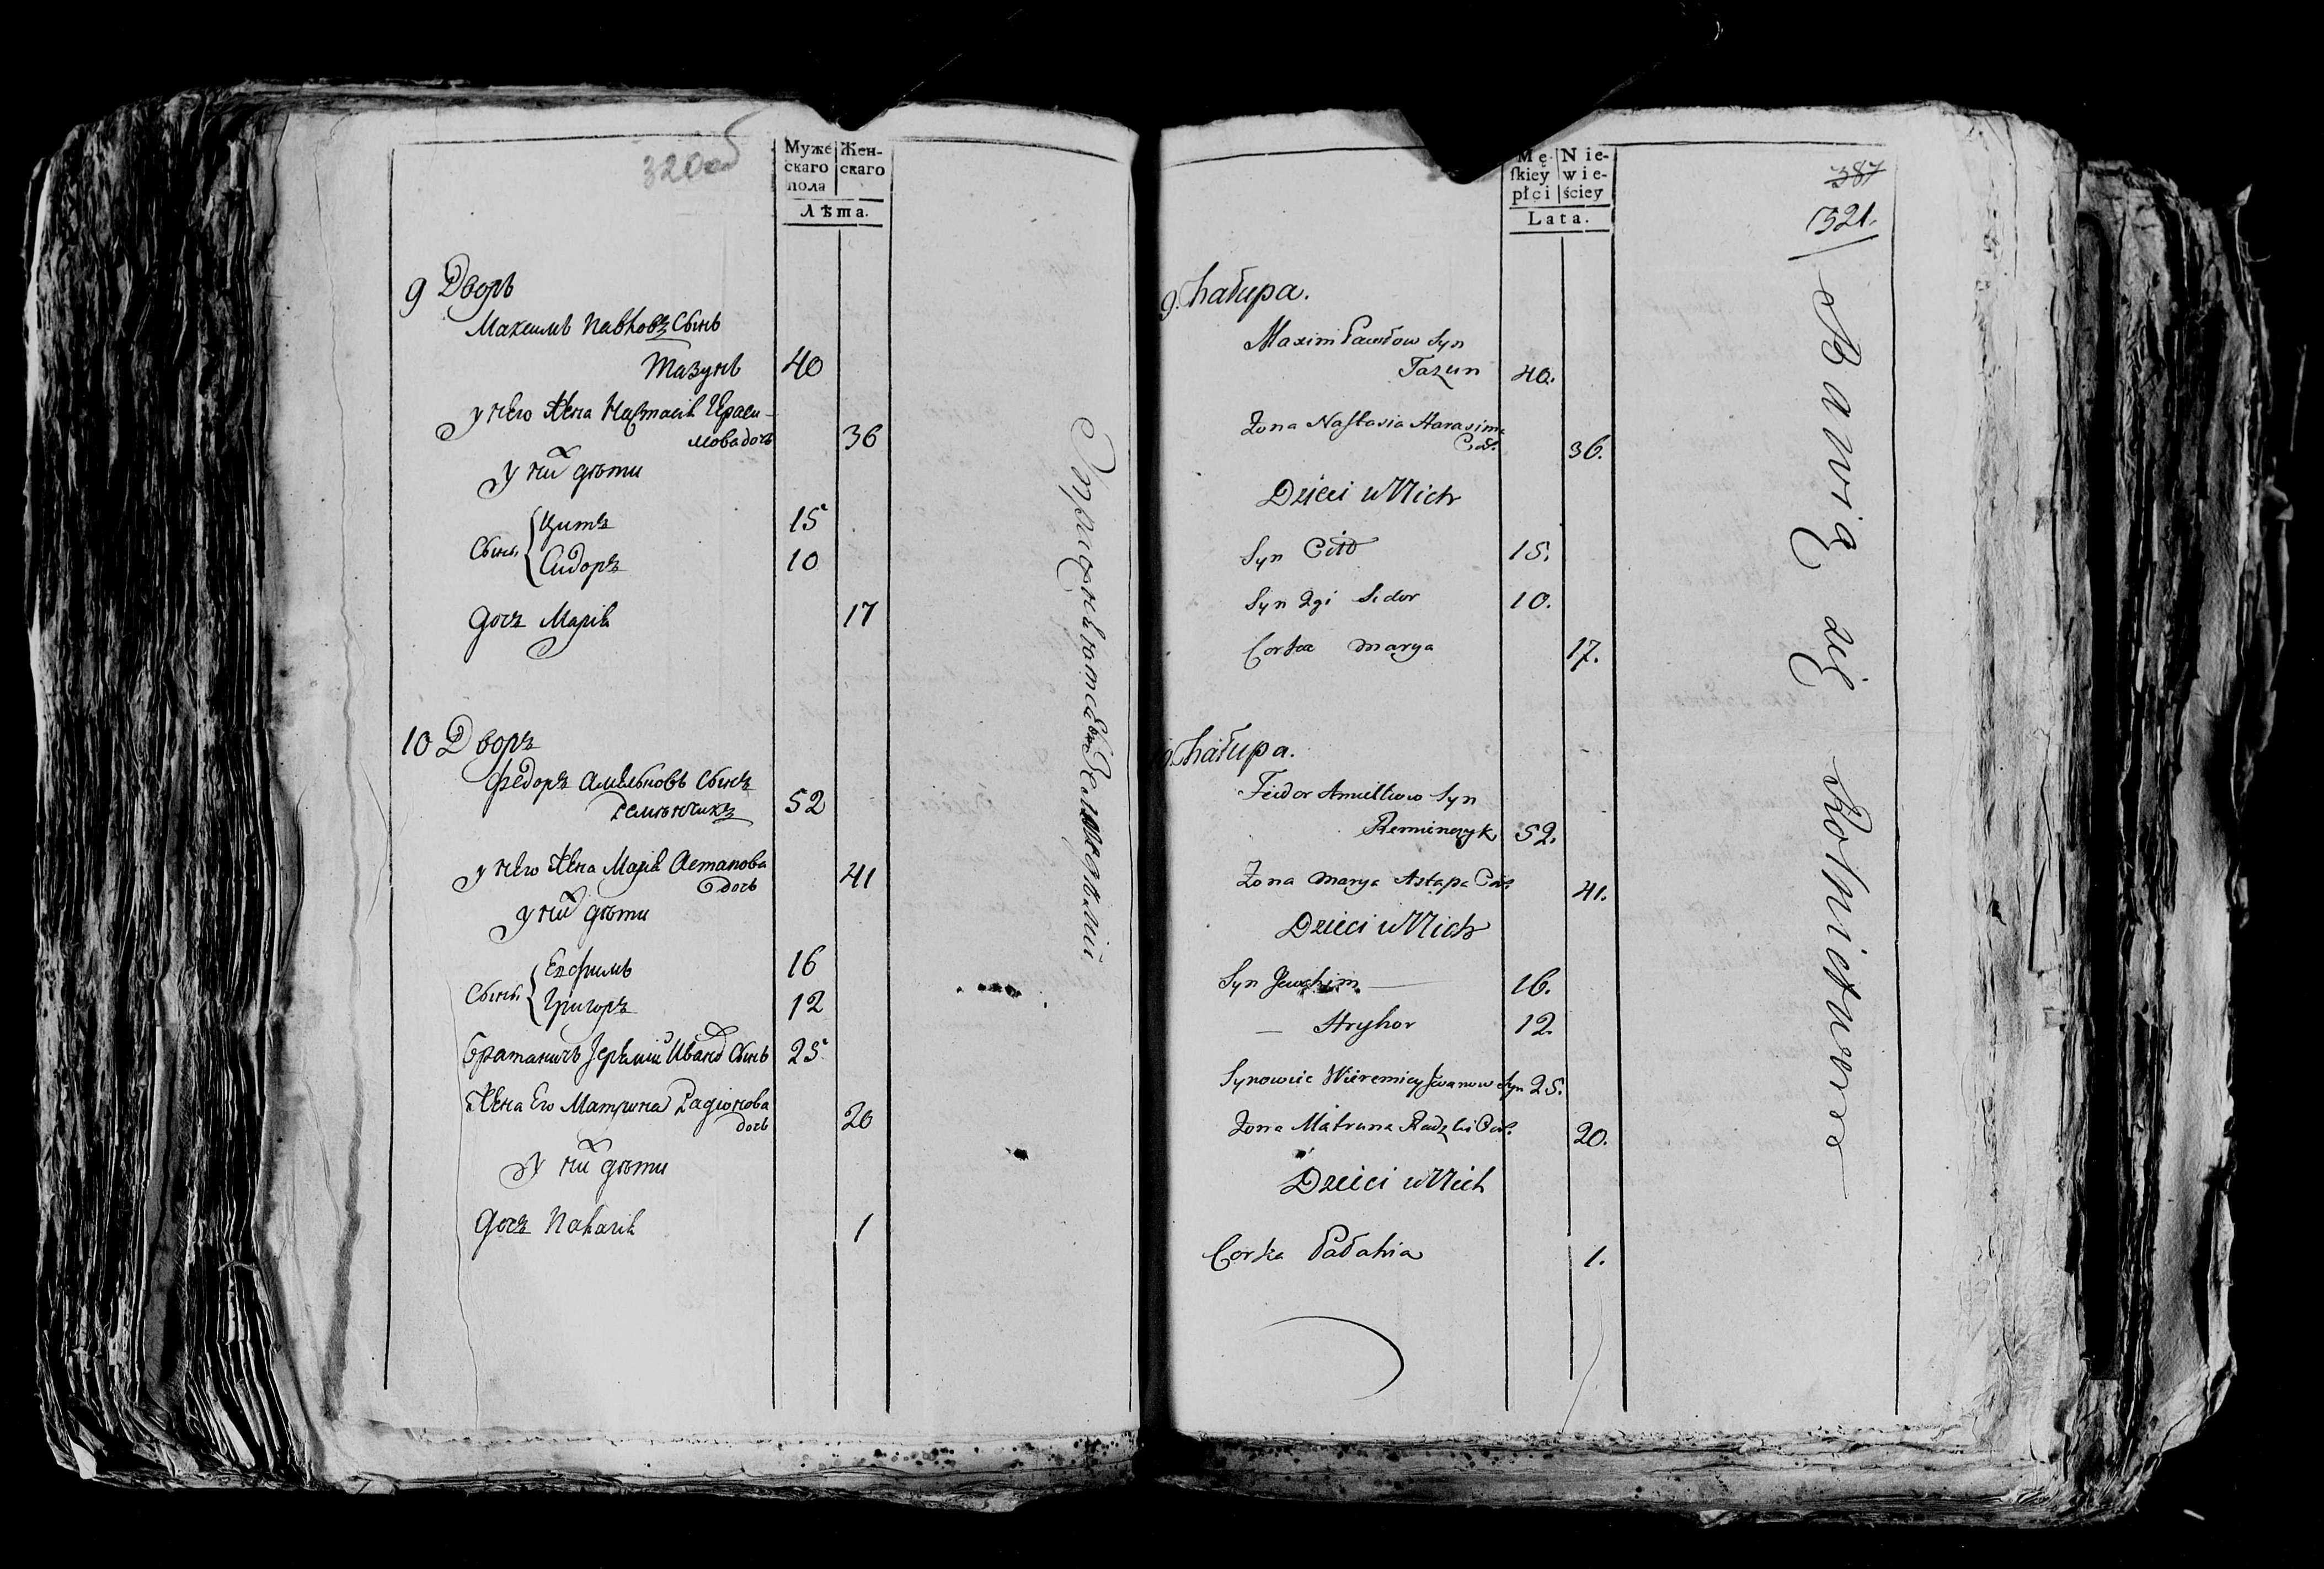 320об
Муже
скаго
пола
Жен-
скаго
Лѣта.
9 Дворъ
Максимъ Павловъ Сынъ
Тазунъ 40
у него Жена Настасiя Гераси-
мова дочь 36
у них дѣти
Сыны Титъ 15
Сидоръ 10
дочь Марiя 17
10 Дворъ
Федоръ Амельновъ Сынъ
Ремѣнчикъ 52
у него Жена Марiя Астапова
дочь 41
у них дѣти
Сыны Евфимъ 16
Григоръ 12
братаничъ Iеремiй Иванов Сынъ 25
Жена Его Матрuна Радiонова
дочь 20
у них дѣти
дочь Палагiя 1
Упражняются въ Земледѣлiи
Mę-
ſkiey
płci
Nie-
wie-
ściey
Lata.
387
321.
9. Chałupa.
Maxim Pawłow Syn
Tazun 40.
Zona Naſtasia Harasima
Cór. 36.
Dzieci u Nich
Syn Cit 15.
Syn 2gi Sidor 10.
Corka Marya 17.
10. Chałupa.
Feidor Amielkow Syn
Remienczyk 52.
Zona Marya Astapa Cór 41.
Dzieci u Nich
Syn Jewchim 16.
— Hryhor 12.
Synowiec Wieremiey Jwanow Syn 25.
Zona Matruna Cor. 20.
Dzieci u Nich
Corka Pałahia 1.
Bawią się Rolnictwem